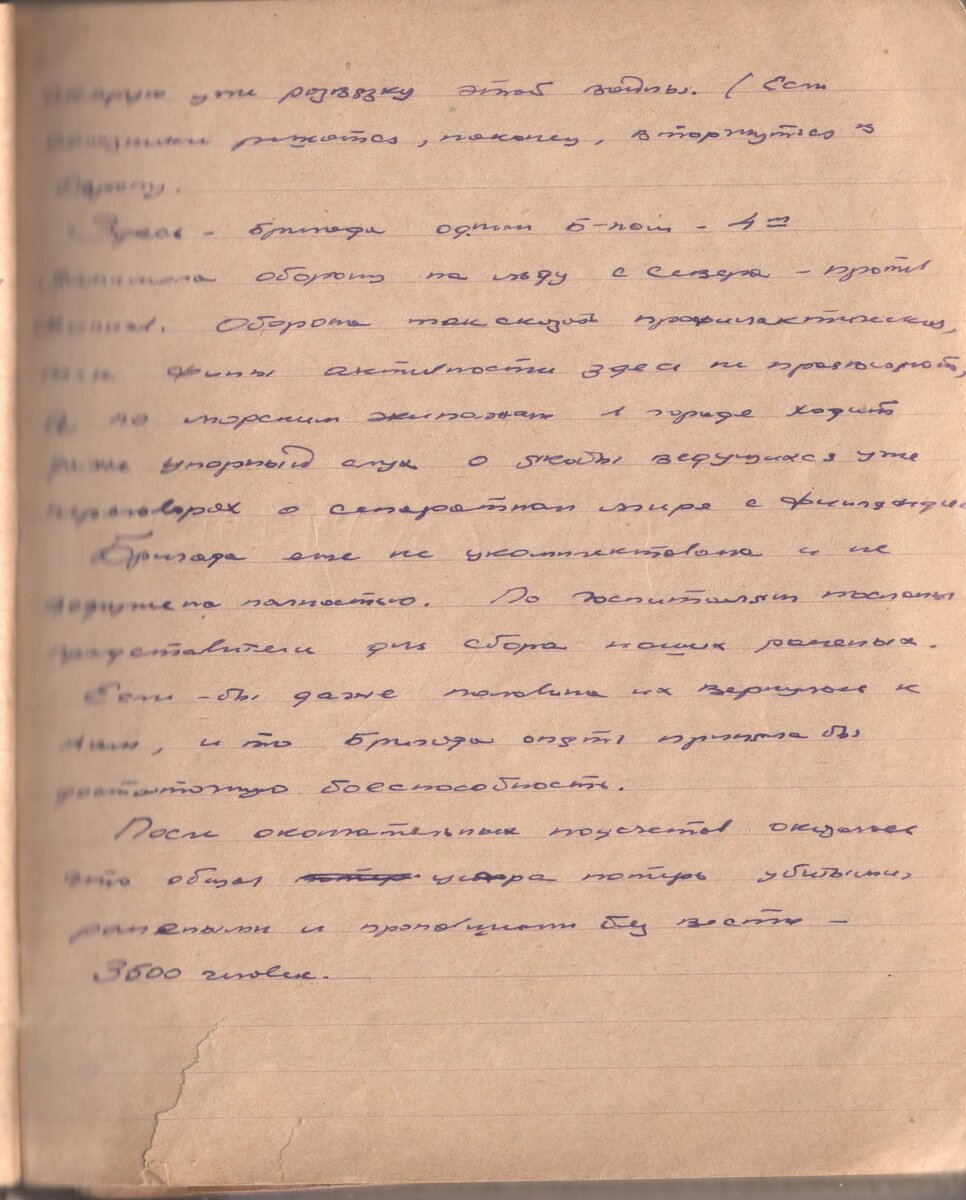 уже розвязку этой войны. (Если
союзники решатся, наконец, вторгнуться в
Европу.
Здесь - бригада одним Б-ном - 4м
занимала оборону на льду с севера - против
финнов. Оборона так сказать профилактическая,
т.к. финны активности здесь не проявляют,
а по морским экипажам и городе ходит
даже упорный слух о якобы ведущихся уже
переговорах о сепаратном мире с Финляндией
Бригада еще не укомплектована и не
полностью. По госпиталям посланы
представители для сбора наших раненых.
Если-бы даже половина их вернулась к
нам, и то Бригада опять приняла бы
достаточную боеспособность.
После окончательных подсчетов оказалось
что общая потерь убитыми,
ранеными и пропавшими без вести -
3600 человек.